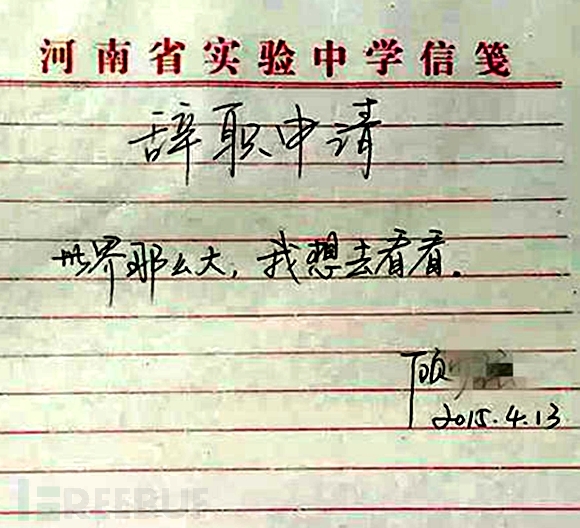 河南省实验中学信笺
辞职申请
世界那么大，我想去看看。
顾
2015.4.13
REEBUF